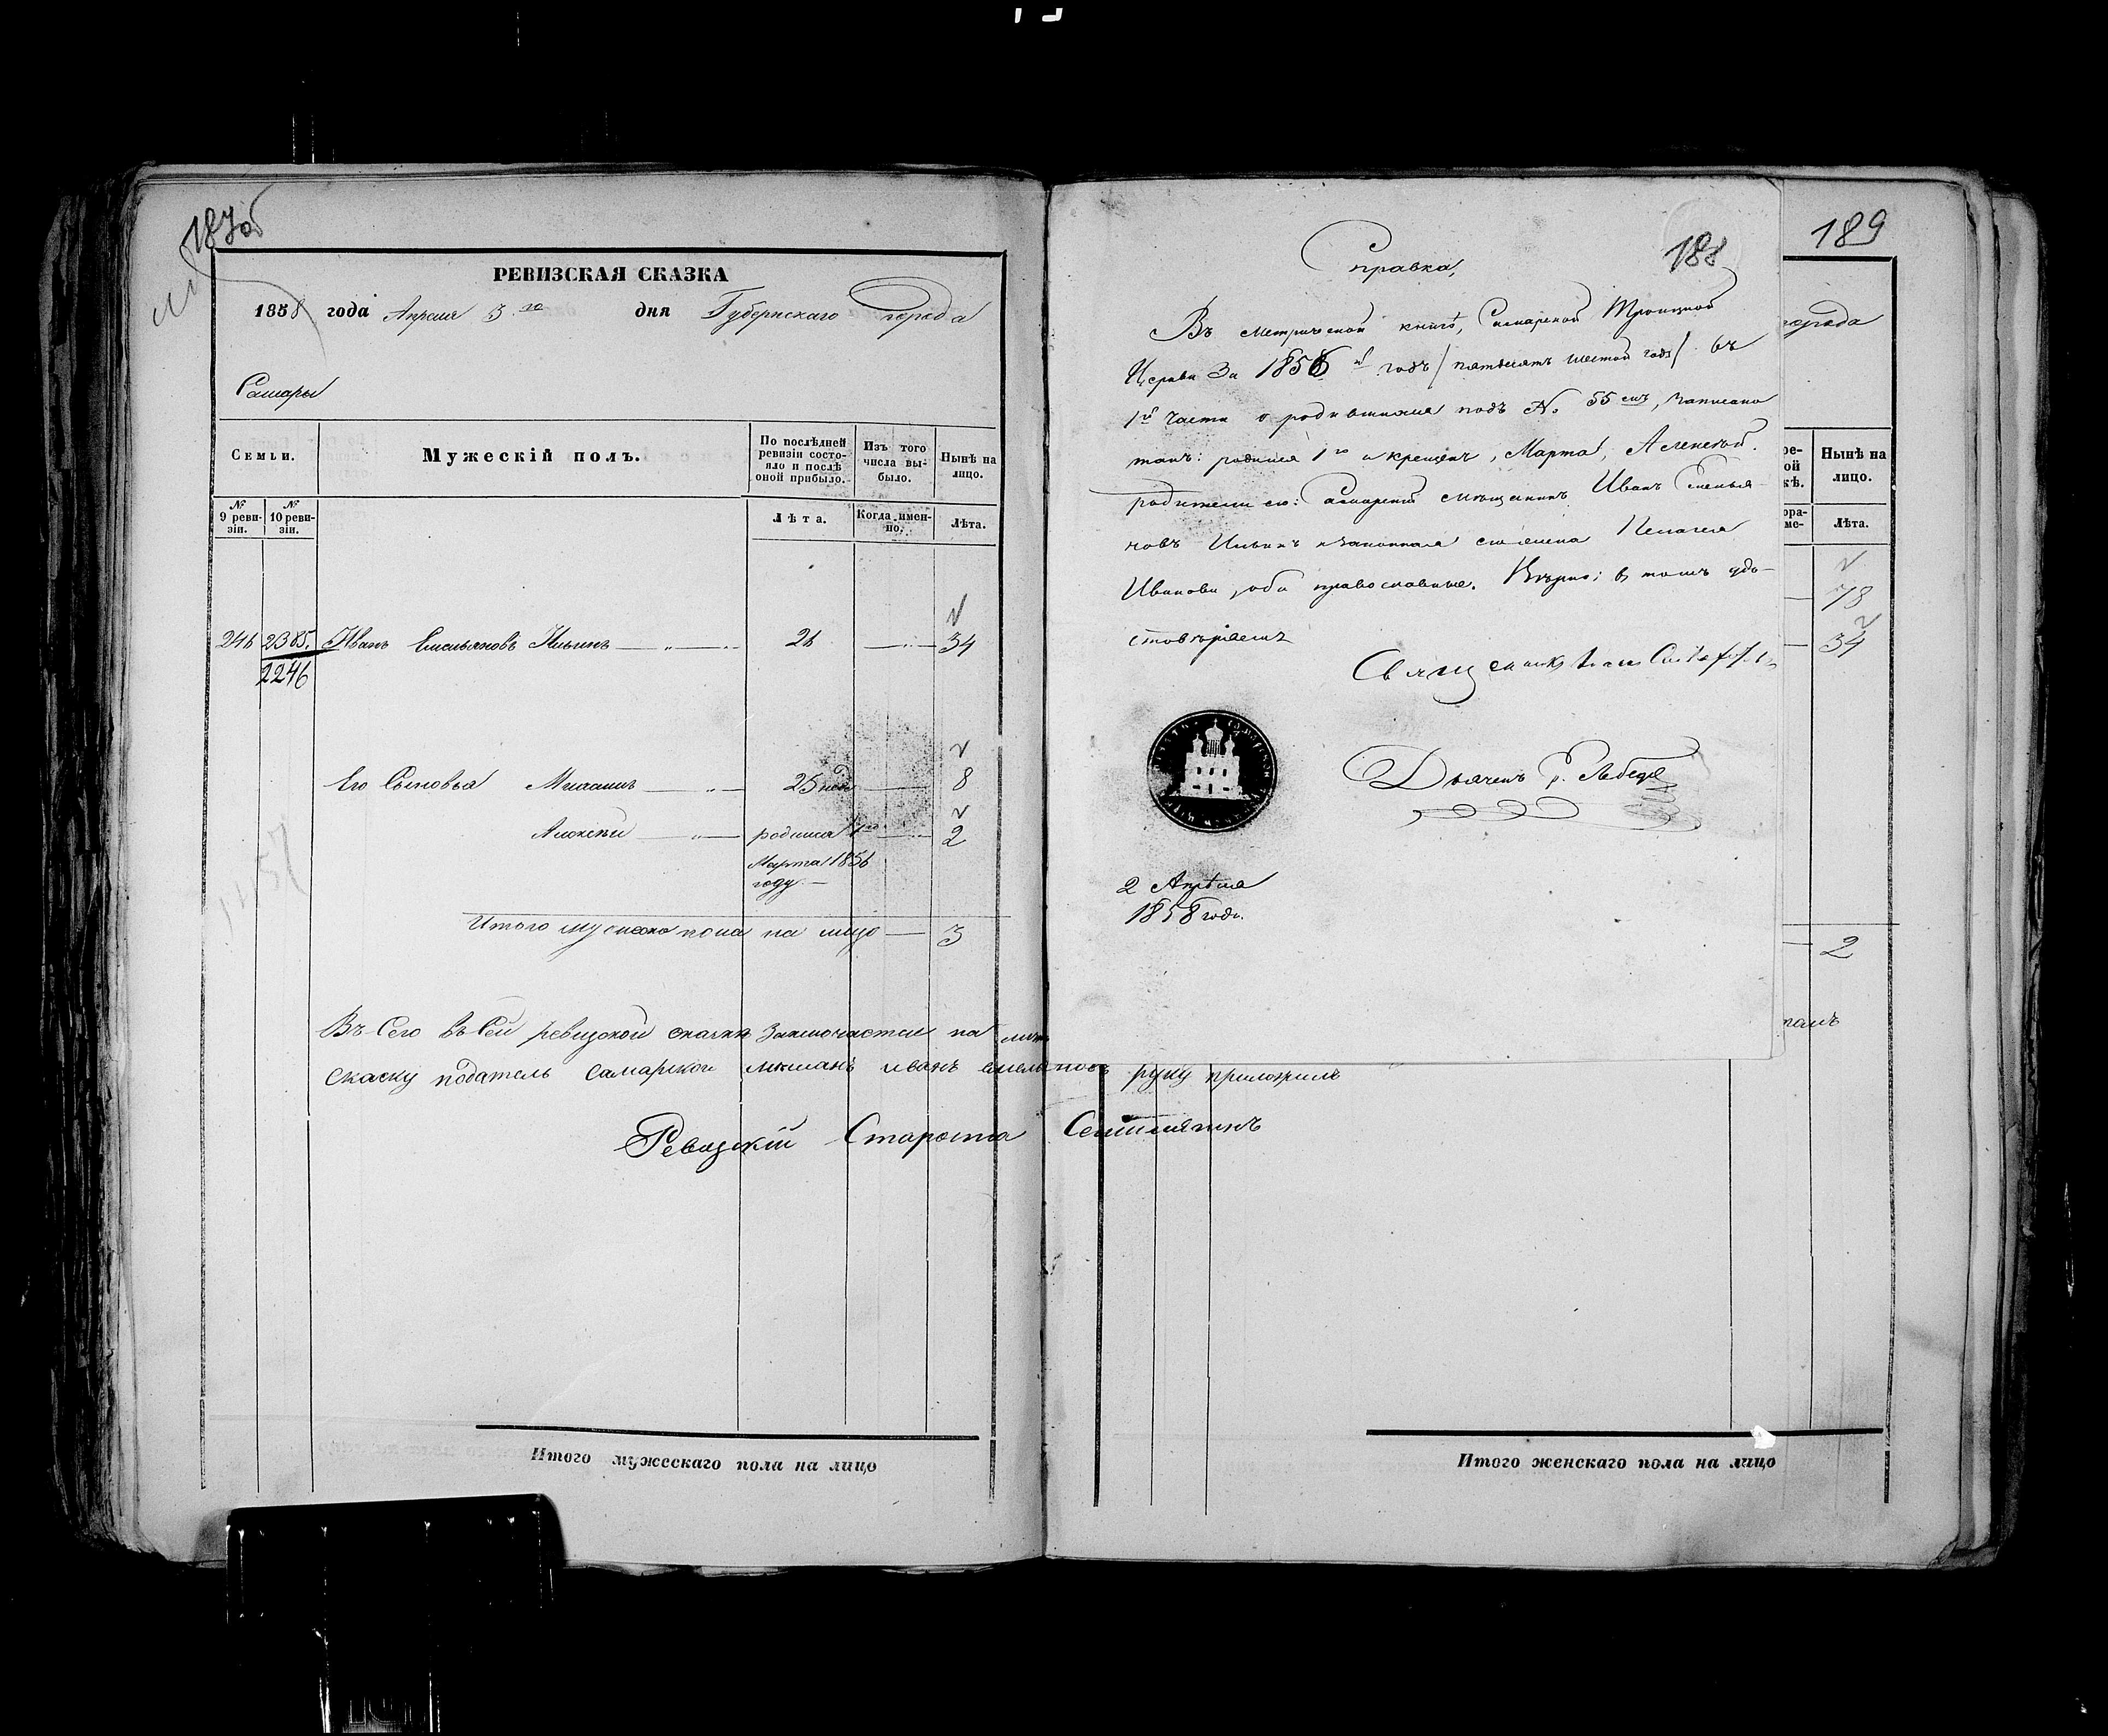 187об
РЕВИЗСКАЯ СКАЗКА
1858 года Апреля 3го дня Губернскаго города
Самары
Семьи.
Мужескій полъ.
По послѣдней ревизіи состояло и послѣ оной прибыло.
Изъ того числа выбыло.
Нынѣ на лицо.
№ 9 ревизіи.
№ 10 ревизіи.
Лѣта.
Когда именно.
Лѣта.
246 2385. Иванъ Емельяновъ Ильинъ 26 34
2246
Его Сыновья Михаилъ 25 нед 8
Алексѣй родился 1го 2
Марта 1856
году
Итого мужеска пола на лицо 3
Въ Сего въ Сей ревизской
скаску податель самарской мещанъ иванъ емельяновъ руку приложилъ
Ревизскій Староста
Итого мужескаго пола на лицо
188
Справка,
Въ метрической книгѣ, Самарской Троицкой
Церкви за 1856й годъ / пятьдесятъ шестой годъ / въ
1й части о родившихся подъ № 55, записано
такъ: родился 1го и крещенъ, Марта, Алексѣй.
родители его: Самарскій мѣщанинъ Иванъ Емелья-
новъ Ильинъ и законная его жена Пелагея
Иванова, оба православные. Вѣрно; въ томъ удо-
стовѣряемъ
Священникъ
Дьячекъ
2 Апрѣля
1858 года.
189
города
Нынѣ на лицо.
Лѣта.
78
34
2
Итого женскаго пола на лицо